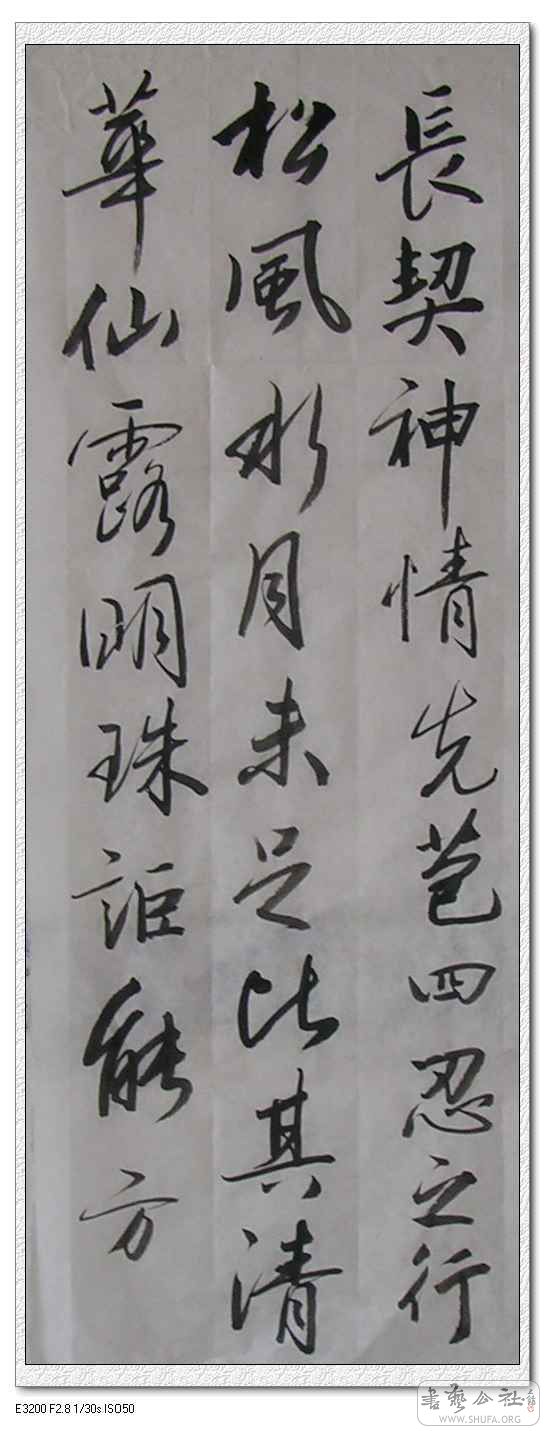 長契神情先苞四忍之行
松風水月未足比其清
華仙露明珠詎能方
E3200 F2.8 1/30s ISO50
書藝公社
WWW.SHUFA.ORG